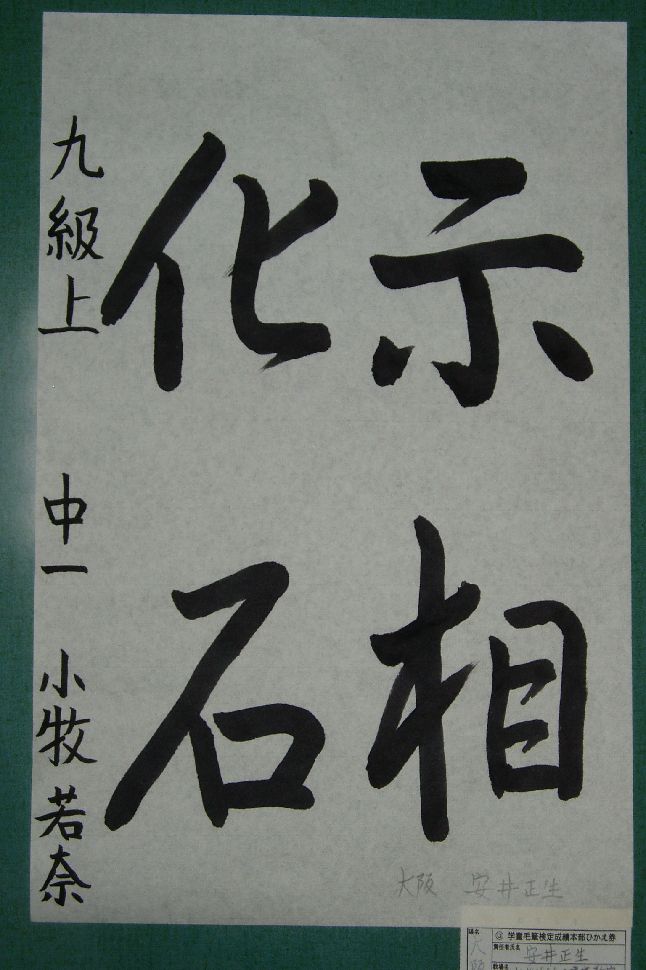 示相
化石
九級上 中一 小牧若奈
大阪 安井正生
学童毛筆検定成績本部ひかえ券
責任者氏名 安井正生